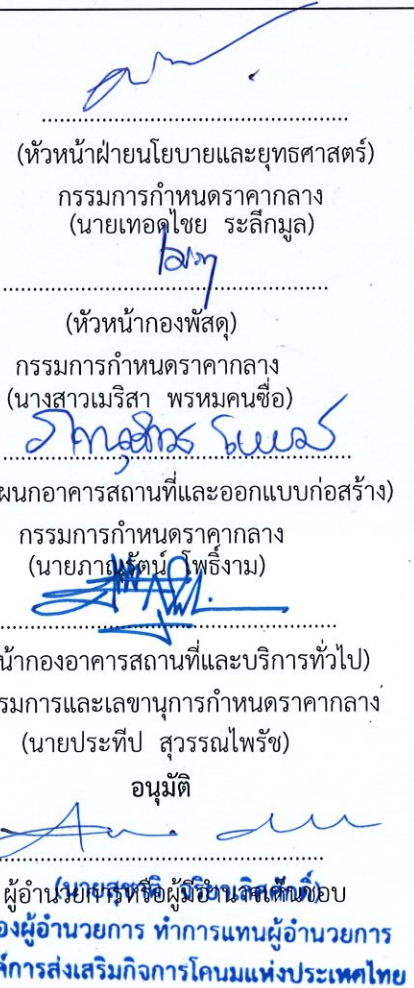 (หัวหน้าฝ่ายนโยบายและยุทธศาสตร์)
กรรมการกำหนดราคากลาง
(นายเทอดไชย ระลึกมูล)
(หัวหน้ากองพัสดุ)
กรรมการกำหนดราคากลาง
(นางสาวเมริสา พรหมคนซื่อ)
ผนกอาคารสถานที่และออกแบบก่อสร้าง)
กรรมการกำหนดราคากลาง
(นายภาณุรัตน์ โพธิ์งาม)
น้ากองอาคารสถานที่และบริการทั่วไป)
รมการและเลขานุการกำหนดราคากลาง
(นายประทีป สุวรรณไพรัช)
อนุมัติ
ผู้อำนวยการหรือผู้มีอำนาจเห็นชอบ
องผู้อำนวยการ ทำการแทนผู้อำนวยการ
ค์การส่งเสริมกิจการโคนมแห่งประเทศไทย